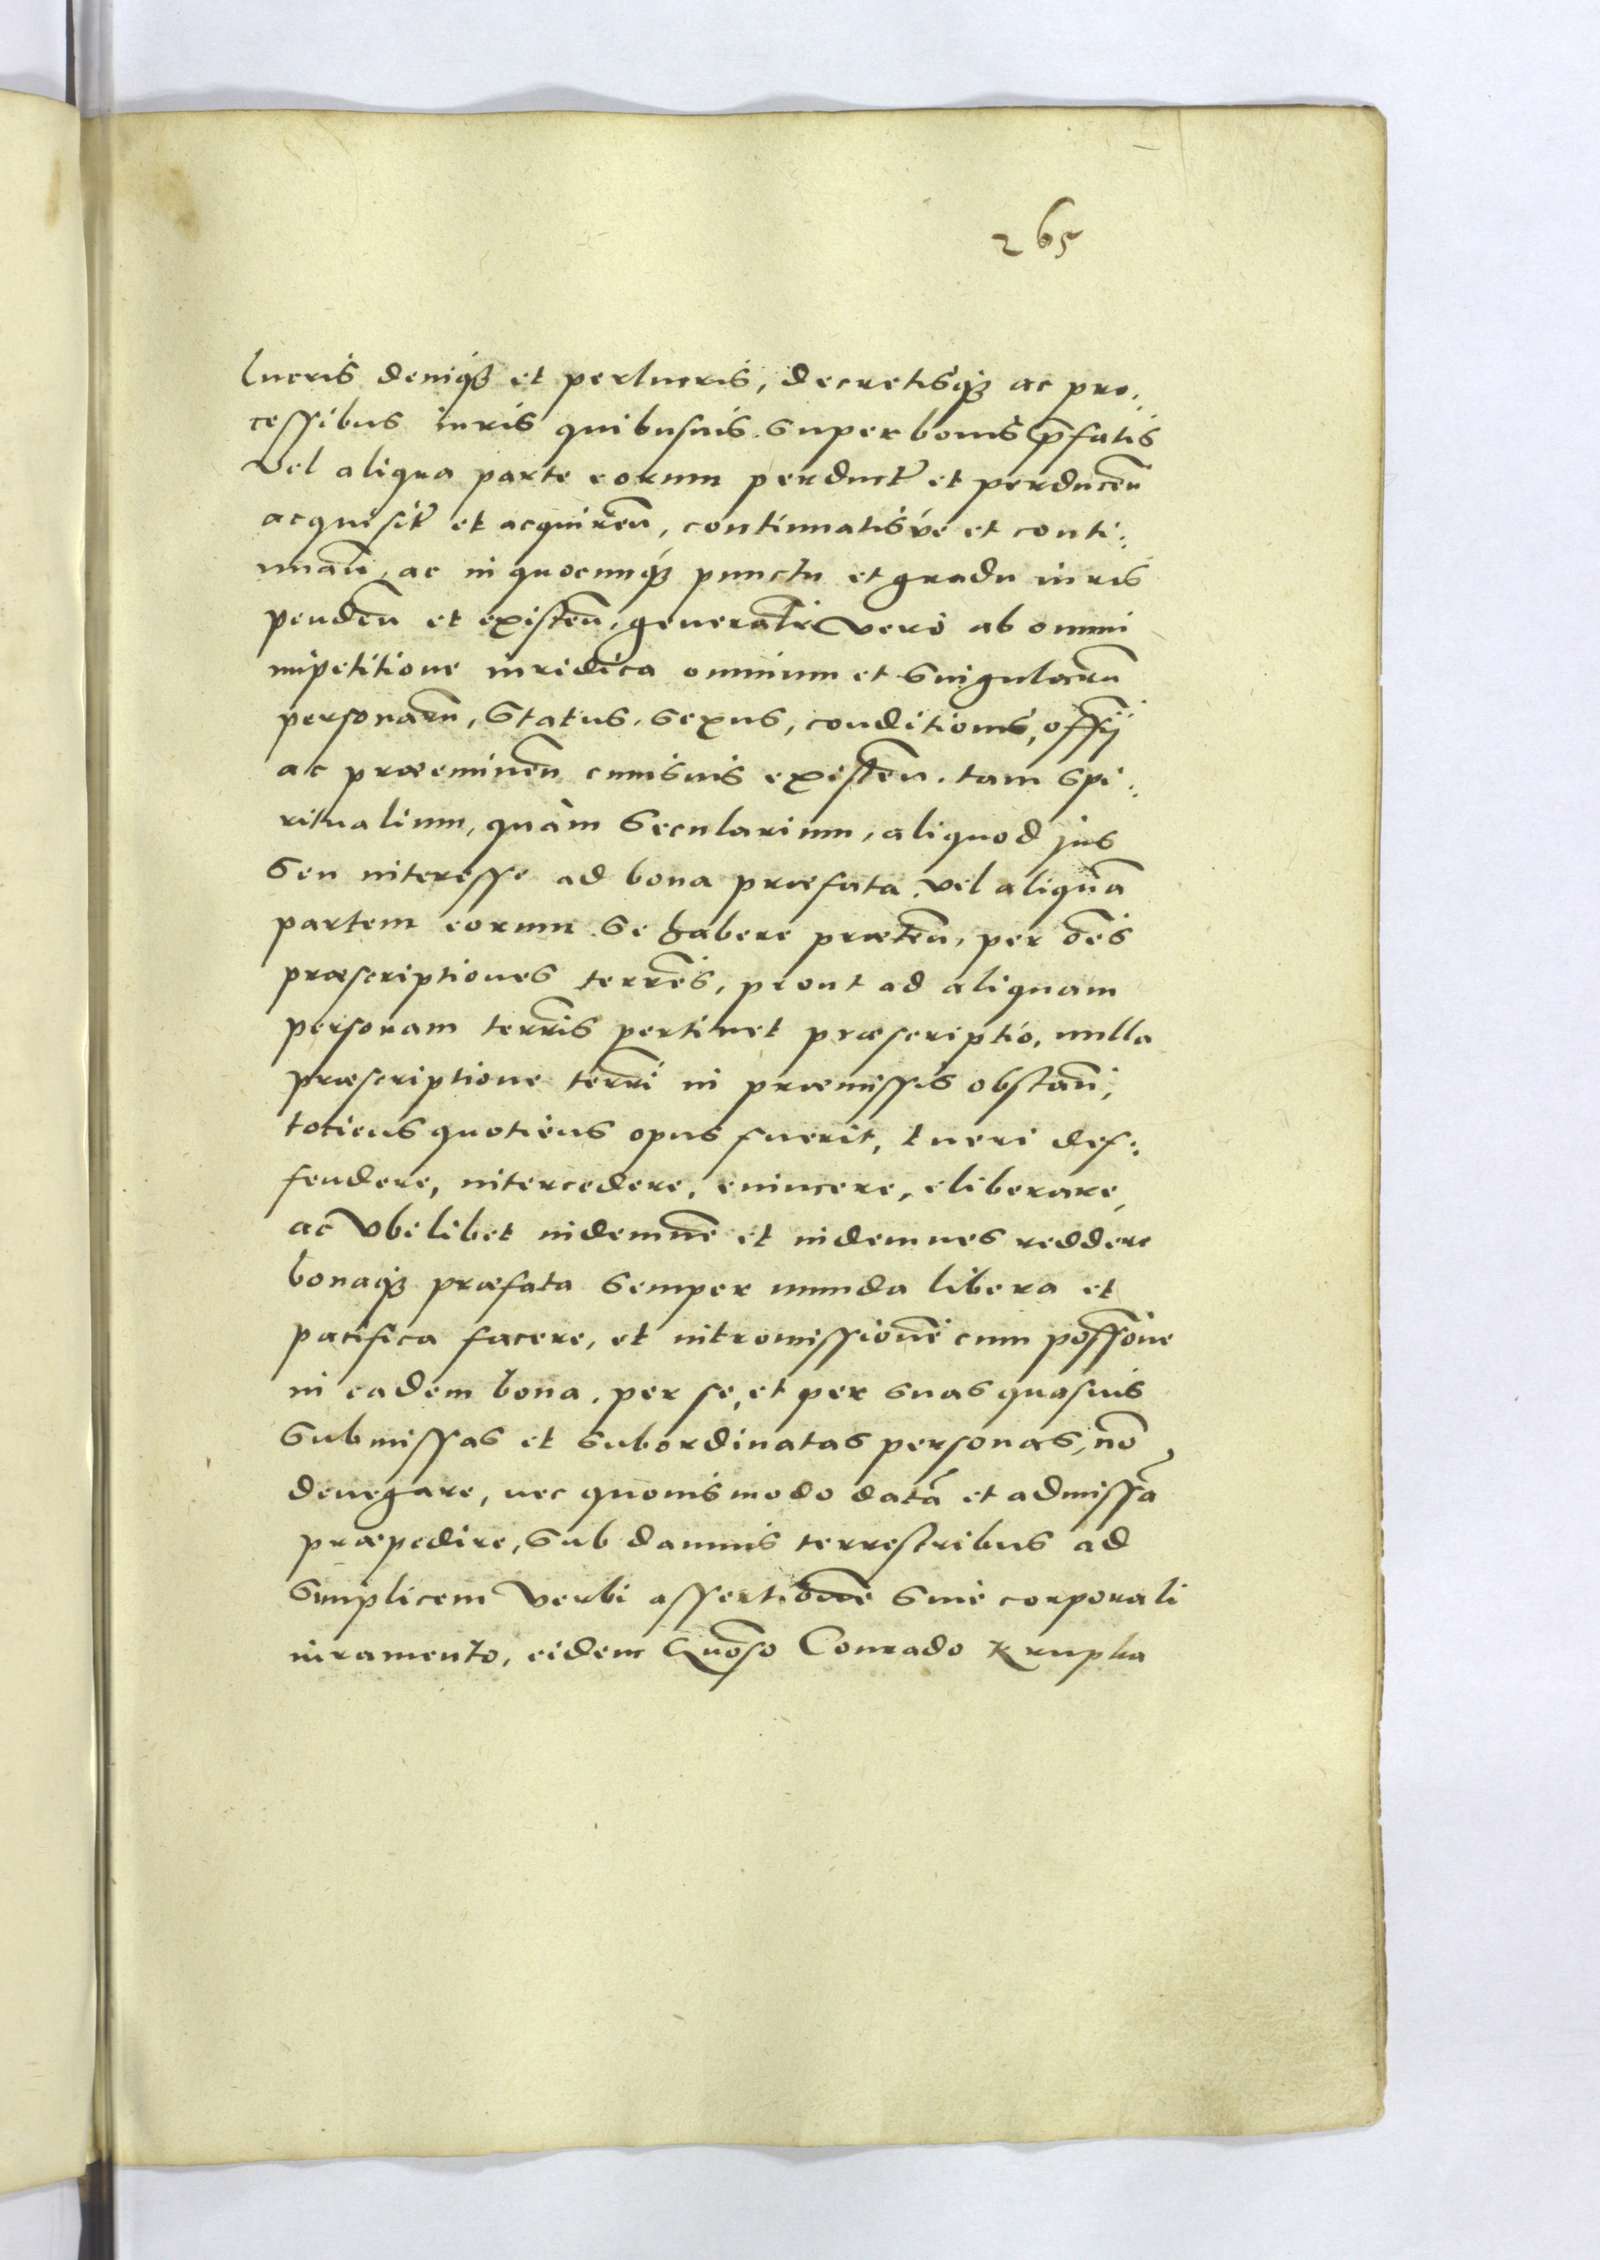 265
lucris deniqꝫ et perlucris, decretisqꝫ ac pro:
cessibus iuris quibusuis super bonis p̄fatis
vel aliqua parte eorum perduct̃ et perduceñ
acquisit̃ et acquireñ, continuatisve et conti:
nuañ, ac in quocunqꝫ punctu et gradu iuris
pendeñ et existeñ, generaĺr vero ab omni
impetitione iuridica omnium et singularũ
personarũ, status, sexus, conditionis, offĩj
ac præemineñ cuiusuis existeñ. tam spi:
ritualium, quàm secularium, aliquod jus
seu interesse ad bona præfata vel aliquã
partem eorum se habere præteñ, per oẽs
præscriptiones terrẽs, prout ad aliquam
personam terrĩs pertinet præscriptio, nulla
præscriptione terrĩ in præmissis obstañ,
totiens quotiens opus fuerit, tueri def:
fendere, intercedere, euincere, eliberare,
ac vbilibet indemnẽ et indemnes reddere
bonaqꝫ præfata semper munda libera et
pacifica facere, et intromissionẽ cum possõne
in eadem bona, per se, et per suas quasuis
submissas et subordinatas personas, nõ
denegare, nec quouismodo datã et admissã
præpedire, sub damnis terrestribus ad
simplicem verbi assertionẽ sine corporali
iuramento, eidem Gñoso Conrado Krupka